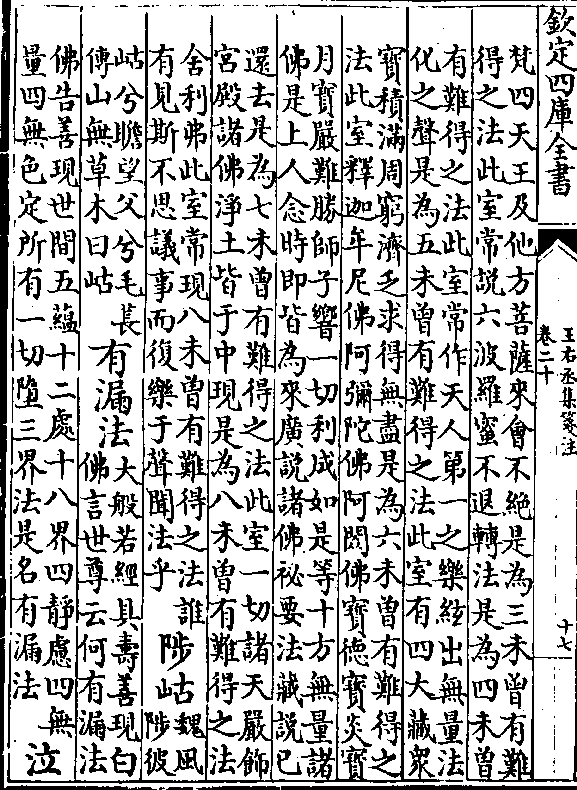 欽定四庫全書
王右丞集箋注
卷二十
十七
梵四天王及他方菩薩來會不絶是為三未曾有難
得之法此室常說六波羅蜜不退轉法是為四未曾
有難得之法此室常作天人第一之樂絃出無量法
化之聲是為五未曾有難得之法此室有四大藏衆
寶積滿周窮濟乏求得無盡是為六未曾有難得之
法此室釋迦牟尼佛阿彌陀佛阿閦佛寶德寶炎寶
月寶嚴難勝師子響一切利成如是等十方無量諸
佛是上人念時即皆為來廣說諸佛祕要法藏說已
還去是為七未曾有難得之法此室一切諸天嚴飾
宮殿諸佛淨土皆于中現是為八未曾有難得之法
舍利弗此室常現八未曾有難得之法誰
有見斯不思議事而復樂于聲聞法乎
陟岵
魏風
陟彼
岵兮瞻望父兮毛長
傳山無草木曰岵
有漏法
大般若經具壽善現白
佛言世尊云何有漏法
佛告善現世間五蘊十二處十八界四靜慮四無
量四無色定所有一切墮三界法是名有漏法
泣